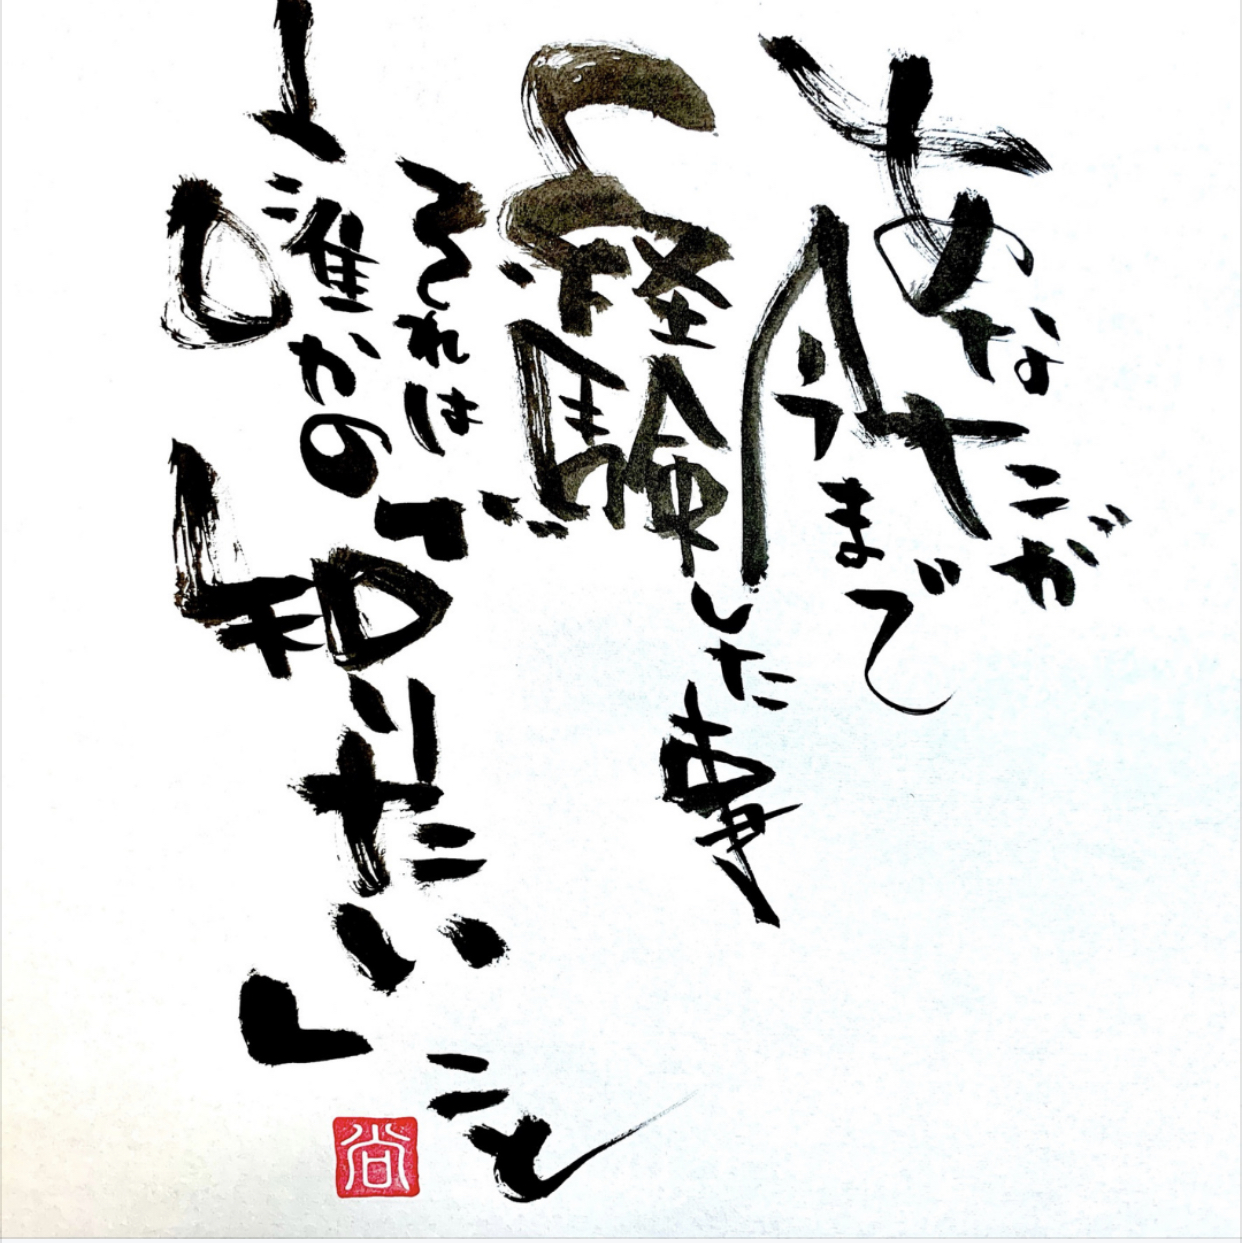 あなたが
今まで
経験した事
それは
誰かの
「知りたい」
こと
尚